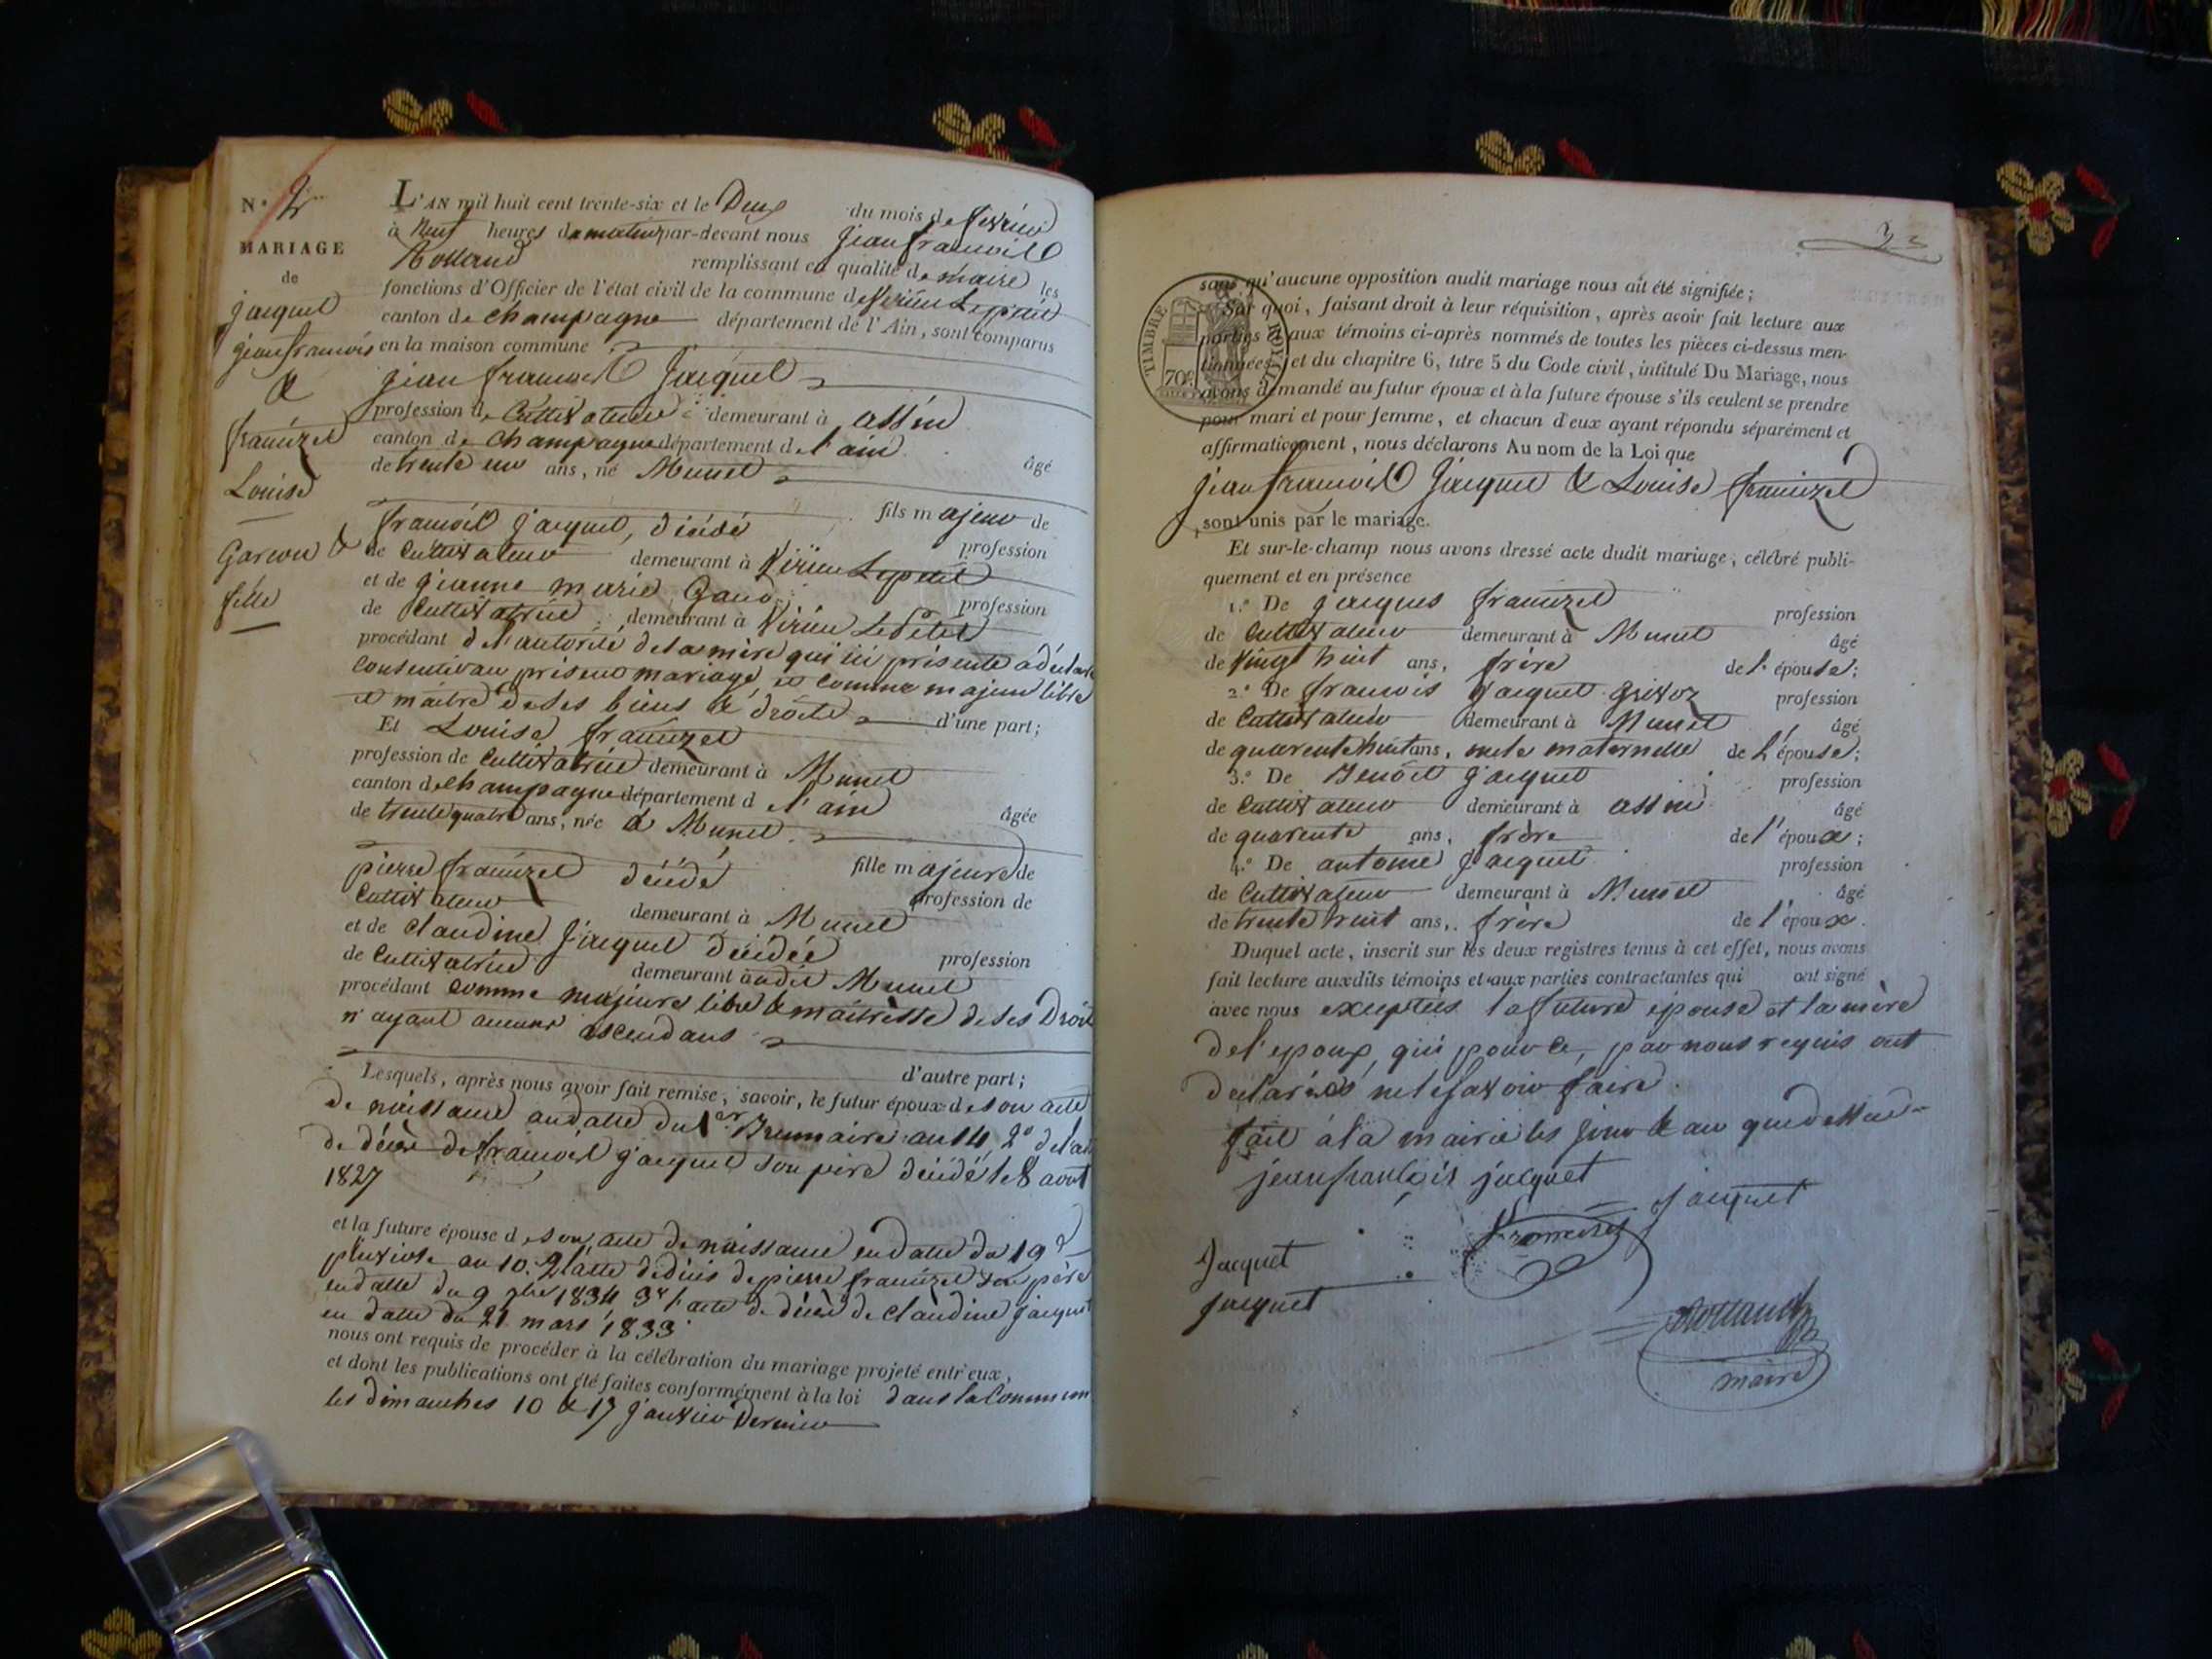 N.° 2
MARIAGE
de
jacquet
jean françois
&
françizet
Louise
Garcon &
fille
L'AN mil huit cent trente-six et le Deux du mois de fevrier
à neuf heures du matin par-devant nous jean françois
Rolland remplissant en qualité de maire les
fonctions d'Officier de l'état civil de la commune de Virieu Le petit
canton de champagne département de l'Ain, sont comparus
en la maison commune
jean françois Jacquet
profession de Cultivateur demeurant à assin
canton de champagne département de l'ain âgé
de trente un ans, né Munet
fils majeur de
françois jacquet, décédé profession
de Cultivateur demeurant à Virieu Le petit
et de jeanne marie Gand profession
de Cultivatrice demeurant à Virieu Le Petit
procédant de l'autorité de sa mère qui ici présente a déclaré
Consentir au présent mariage et comme majeur libre
et maitre de ses biens & droits d'une part;
Et Louise françizet
profession de Cultivatrice demeurant à Munet
canton de champagne département de l'ain âgée
de trente quatre ans, née à Munet
fille majeure de
pierre françizet décédé profession de
Cultivateur demeurant à Munet
et de claudine jacquet décédée profession
de Cultivatrice demeurant audit Munet
procédant comme majeure libre & maitresse de ses Droits
n'ayant aucuns ascendans
d'autre part;
Lesquels, après nous avoir fait remise, savoir, le futur époux de son acte
de naissance en datte du 1er Brumaire an 14 2° de l'acte
de décès de françois jacquet son père décédé le 8 avout
1827
et la future épouse de son acte de naissance en datte du 19
pluviose an 10. 2° l'acte de décès de pierre françizet son père
en datte du 9 9bre 1834 3° l'acte de décès de claudine jacquet
en datte du 21 mars 1833
nous ont requis de procéder à la célébration du mariage projeté entr'eux,
et dont les publications ont été faites conformément à la loi dans la Commune
les dimanches 10 & 17 janvier dernier
3
TIMBRE ROYAL
70c
sans qu'aucune opposition audit mariage nous ait été signifiée;
Sur quoi, faisant droit à leur réquisition, après avoir fait lecture aux
parties et aux témoins ci-après nommés de toutes les pièces ci-dessus men-
tionnées, et du chapitre 6, titre 5 du Code civil, intitulé Du Mariage, nous
avons demandé au futur époux et à la future épouse s'ils veulent se prendre
pour mari et pour femme, et chacun d'eux ayant répondu séparément et
affirmativement, nous déclarons Au nom de la Loi que
jean françois Jacquet & Louise françizet
sont unis par le mariage.
Et sur-le-champ nous avons dressé acte dudit mariage, célébré publi-
quement et en présence
1.° De jacques françizet profession
de Cultivateur demeurant à Munet âgé
de vingt huit ans, frère de l'épouse;
2.° De francois jacquet Grivoz profession
de Cultivateur demeurant à Munet âgé
de quarente huit ans, oncle maternelle de l'épouse;
3.° De Benoit jacquet profession
de Cultivateur demeurant à assin âgé
de quarente ans, frère de l'époux;
4.° De antoine jacquet profession
de Cultivateur demeurant à Munet âgé
de trente huit ans, frère de l'époux.
Duquel acte, inscrit sur les deux registres tenus à cet effet, nous avons
fait lecture auxdits témoins et aux parties contractantes qui ont signé
avec nous exceptées la future épouse et la mère
de l'époux, qui pour ce, par nous requis ont
declarées ne le savoir faire.
fait à la mairie les jour & an que dessus
jean françois jacquet
jacquet
Jacquet
jacquet
Rolland
maire